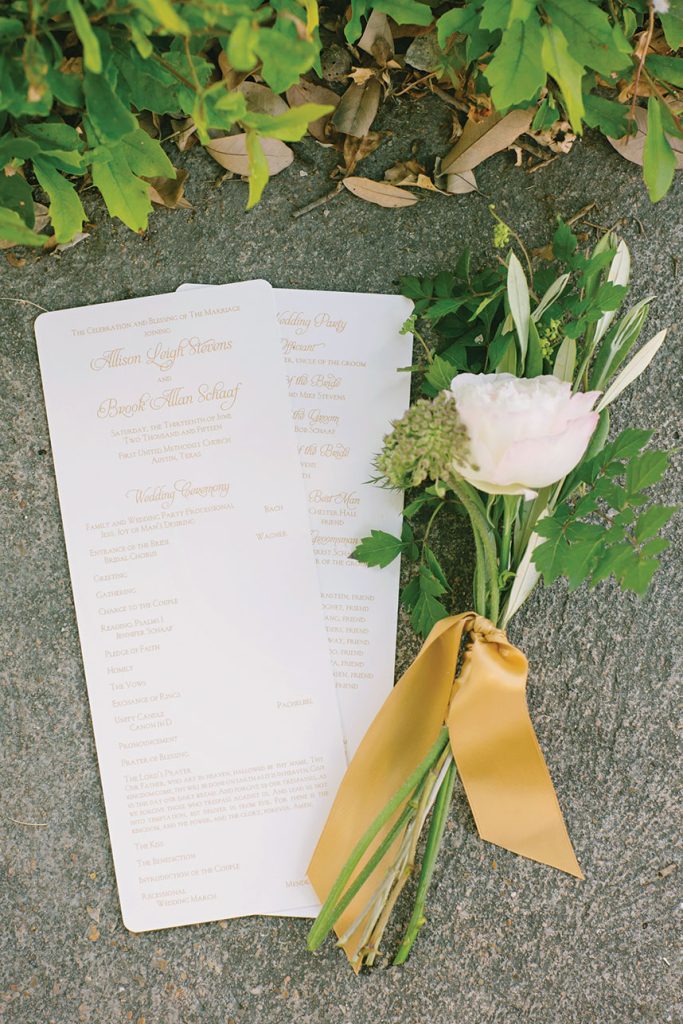 The Celebration and Blessing of The Marriage
joining
Allison Leigh Stevens
and
Brook Allan Schaaf
Saturday, the Thirteenth of June
Two Thousand and Fifteen
First United Methodist Church
Austin, Texas
Wedding Ceremony
Family and Wedding Party Processional
Jesu, Joy of Man's Desiring Bach
Entrance of the Bride Wagner
Bridal Chorus
Greeting
Gathering
Charge to the Couple
Reading: Psalms
Jennifer Schaaf
Pledge of Faith
Homily
The Vows
Exchange of Rings
Unity Candle Pachelbel
Canon in D
Pronouncement
Prayer of Blessing
The Lord's Prayer
Our Father, who art in heaven, hallowed by thy name. Thy
kingdom come, thy will be done on earth as it is in heaven. Give
us this day our daily bread. And forgive us our trespasses, as
we forgive those who trespass against us. And lead us not
into temptation, but deliver us from evil. For thine is the
kingdom, and the power, and the glory, forever. Amen.
The Kiss
The Benediction
Introduction of the Couple
Recessional Mende
Wedding March
Wedding Party
Officiant
, uncle of the groom
of the Bride
Mrs Stevens
the Groom
Bob Schaaf
of the Bride
Best Man
Chester Hall
friend
Groomsman
Schaaf
of the groom
friend
friend
friend
friend
friend
friend
friend